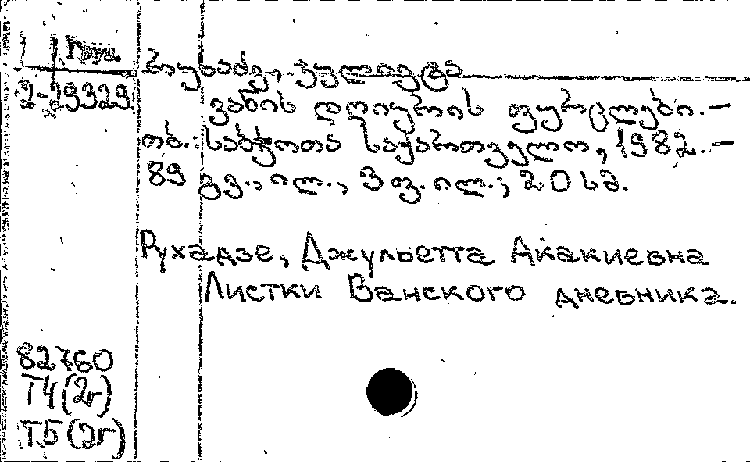 რუხაძე, ჯულიეტა
2-29329
ვანის დღიურის ფურცლები. –
თბ.: საბჭოთა საქართველო, 1982. –
89 გვ., ილ., 3 ფ. ილ.; 20 სმ.
Рухадзе, Джульетта Акакиевна
Листки Ванского дневника.
82760
Т4(2г)
Т5(2г)